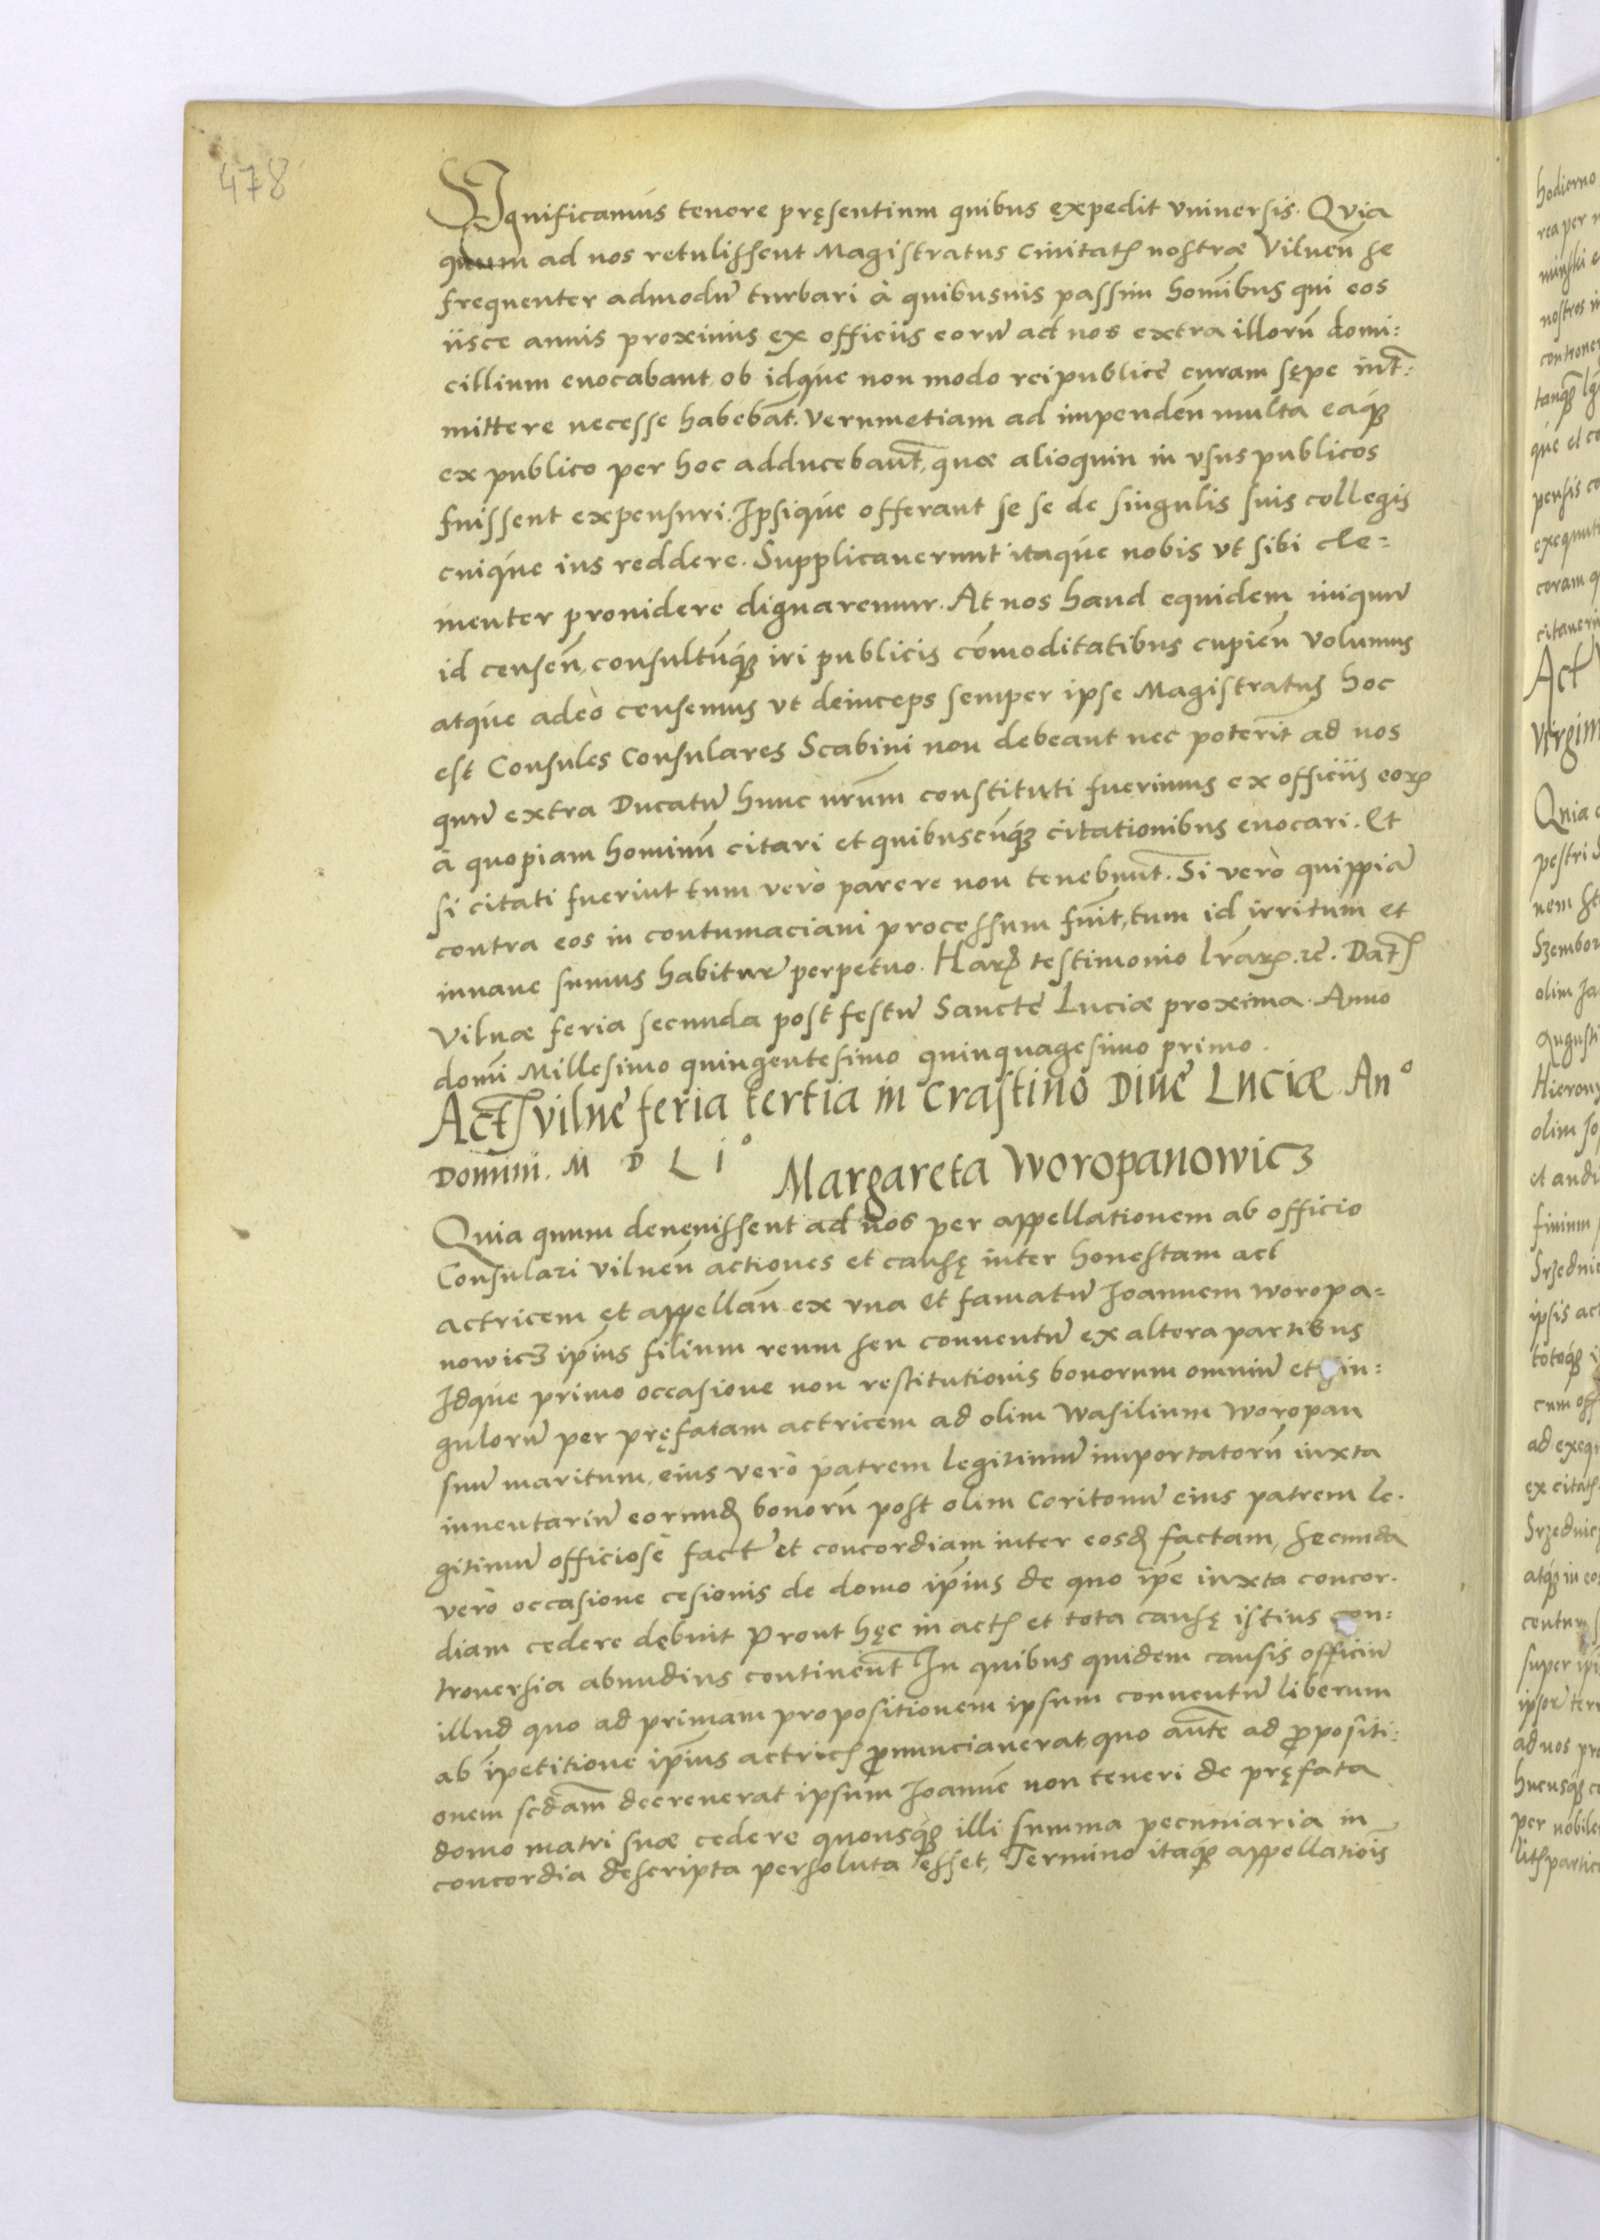 478
Significamus tenore pręsentium quibus expedit vniuersis. Quia
quum ad nos retulissent Magistratus Ciuitatis nostræ Vilnen̄ se
frequenter admodū turbari à quibusuis passim homībus qui eos
iisce annis proximis ex officiis eorū ad nos extra illorū domi:
cillium euocabant, ob idque non modo reipublicę curam sępe int̄:
mittere necesse habebāt. Verumetiam ad impenden̄ multa eaqꝫ
ex publico per hoc adducebant̄, quæ alioquin in vsus publicos
fuissent expensuri. Ipsique offerant se se de singulis suis collegis
cuique ius reddere. Supplicauerunt itaque nobis vt sibi cle=
menter prouidere dignaremur. At nos haud equidem iniquū
id censen̄, consultūqꝫ iri publicis cōmoditatibus cupien̄ volumus
atque adeò censemus vt deinceps semper ipse Magistratus hoc
est Consules Consulares Scabini non debeant nec poterīt ad nos
quū extra Ducatū hunc nr̄um constituti fuerimus ex officiis eoꝝ
à quopiam hominū citari et quibuscūqꝫ citationibus euocari. Et
si citati fuerint tum verò parere non tenebunt̄. Si verò quippiā
contra eos in contumaciam processum fuīt, tum id irritum et
innane sumus habiturj perpetuo. Haꝝ testimonio lr̄aꝝ. ꝛc̄. Datꝭ
Vilnæ feria secunda post festū Sanctę Luciæ proxima. Anno
domī Millesimo quingentesimo quinquagesimo primo.
Actꝭ Vilnę feria tertia in Crastino Diuę Luciæ. An°
Domini. M D L I°
Margareta Woropanowicz
Quia quum deuenissent ad nos per appellationem ab officio
Consulari Vilnen̄ actiones et causę inter honestam act
actricem et appellan̄ ex vna et famatū Joannem Woropa=
nowicz ip̄ius filium reum seu conuentū ex altera partibus
Idque primo occasione non restitutionis bonorum omniū et sin=
gulorū per pręfatam actricem ad olim Wasilium Woropan
suū maritum, eius verò patrem legitimū importatorū iuxta
inuentariū eorundꝫ bonorū post olim Coritonū eius patrem le.
gitimū officiosè fact̄ et concordiam inter eosdꝫ factam, secunda
verò occasione cesionis de domo ip̄ius de quo ip̄e iuxta concor.
diam cedere debuit Prout hęc in actꝭ et tota causę istius con=
trouersia abundius continent̄ In quibus quidem causis officiū
illud quo ad primam propositionem ipsum conuentū liberum
ab ipetitione ip̄ius actricꝭ ꝓnunciauerat, quo aūte ad ꝓpositi:
onem sed̄am decreuerat ipsum Joannē non teneri de pręfata
domo matri suæ cedere quousqꝫ illi summa pecuniaria in
concordia descripta persoluta esset, Termino itaqꝫ appellatiōis